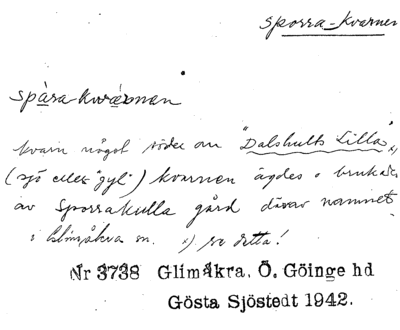 Sporra-kvarnen
spårakvarnen
kvarn något söder om "Dalshults Lilla" x)
(sjö eller "gyl") kvarnen ägdes o brukades
av Sporrakulla gård därav namnet
i Glimåkra sn. x) se detta!
Nr 3738 Glimåkra, Ö. Göinge hd
Gösta Sjöstedt 1942.